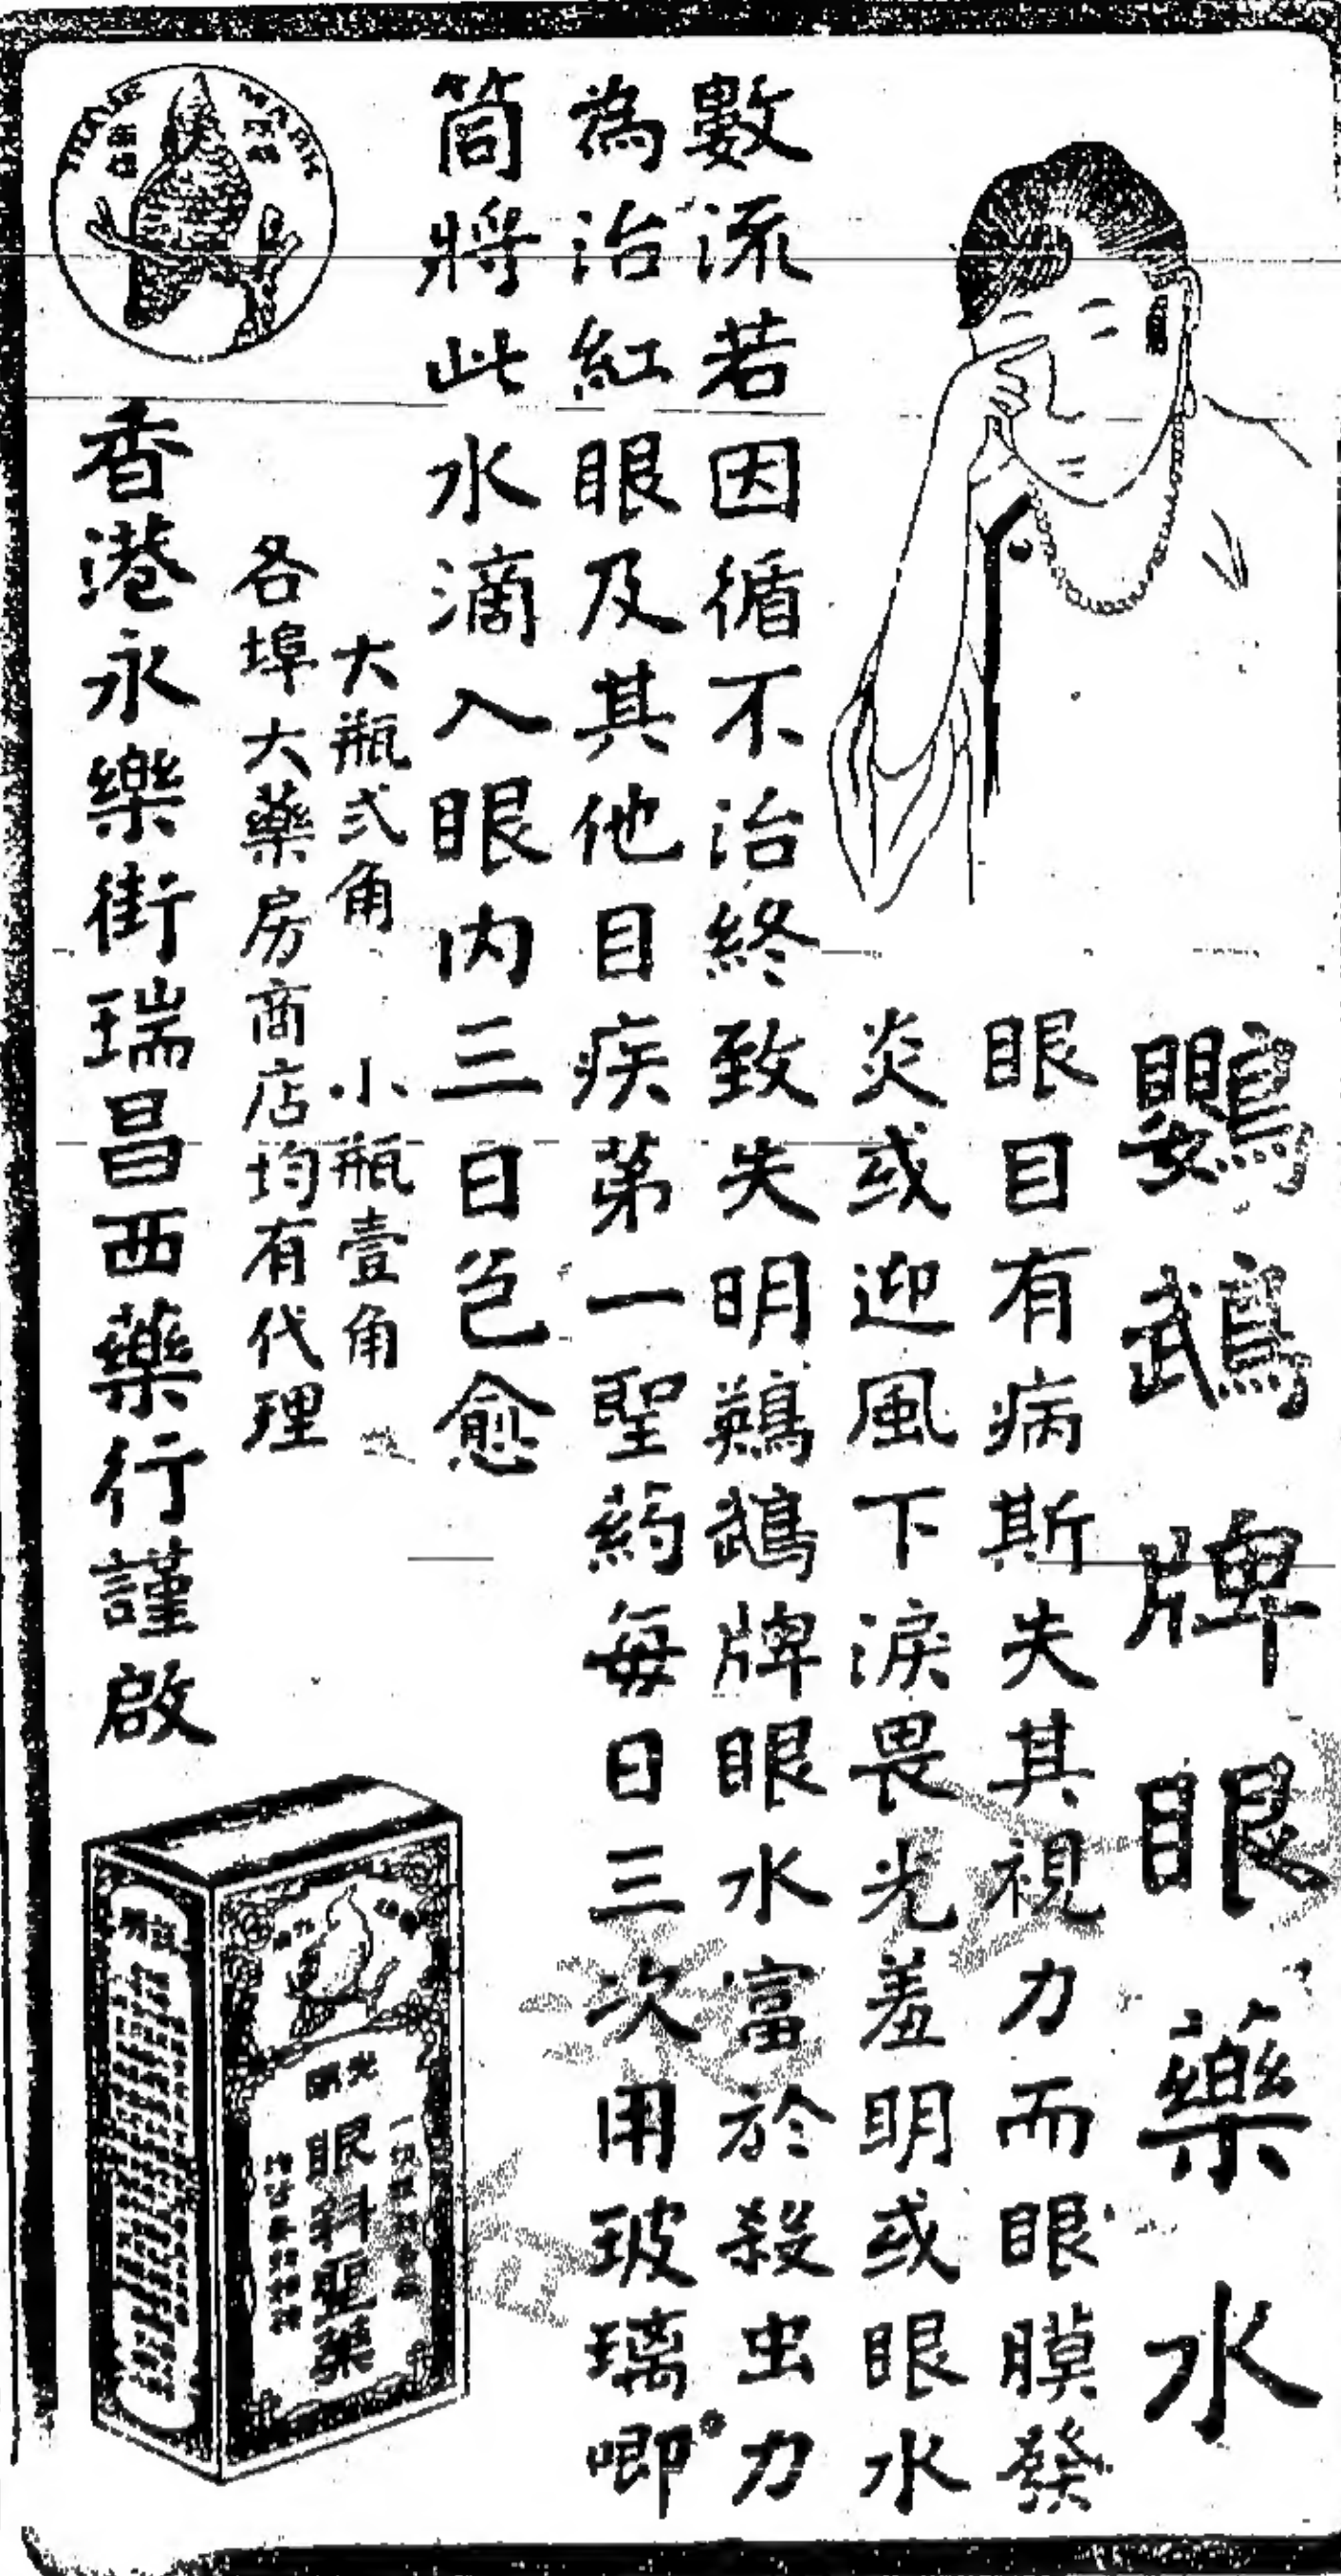 鸚鵡牌眼藥水
眼目有病斯失其視力而眼膜發
炎或迎風下淚畏光羞明或眼水
數流若因循不治終致失明鸚鵡牌眼水富於殺虫力
為治紅眼及其他目疾第一聖葯每日三次用玻璃唧
筒將此水滴入眼內三日包愈
大瓶弍角 小瓶壹角
各埠大藥房商店均有代理
香港永樂街瑞昌西藥行謹啟
TRADE MARK
眼科聖藥